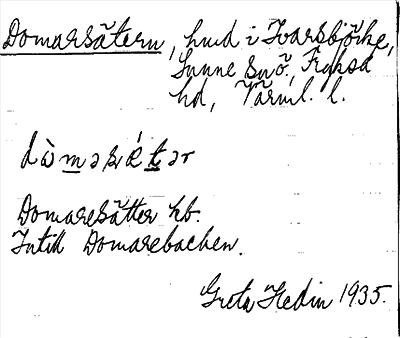 Domarsätern, hmd i Ivarsbjörke,
Sunne snö., Fryksd
hd, Värml. l.
dòmasǽtər
Domaresätter hb.
Intill Domarebacken.
Greta Hedin 1935.